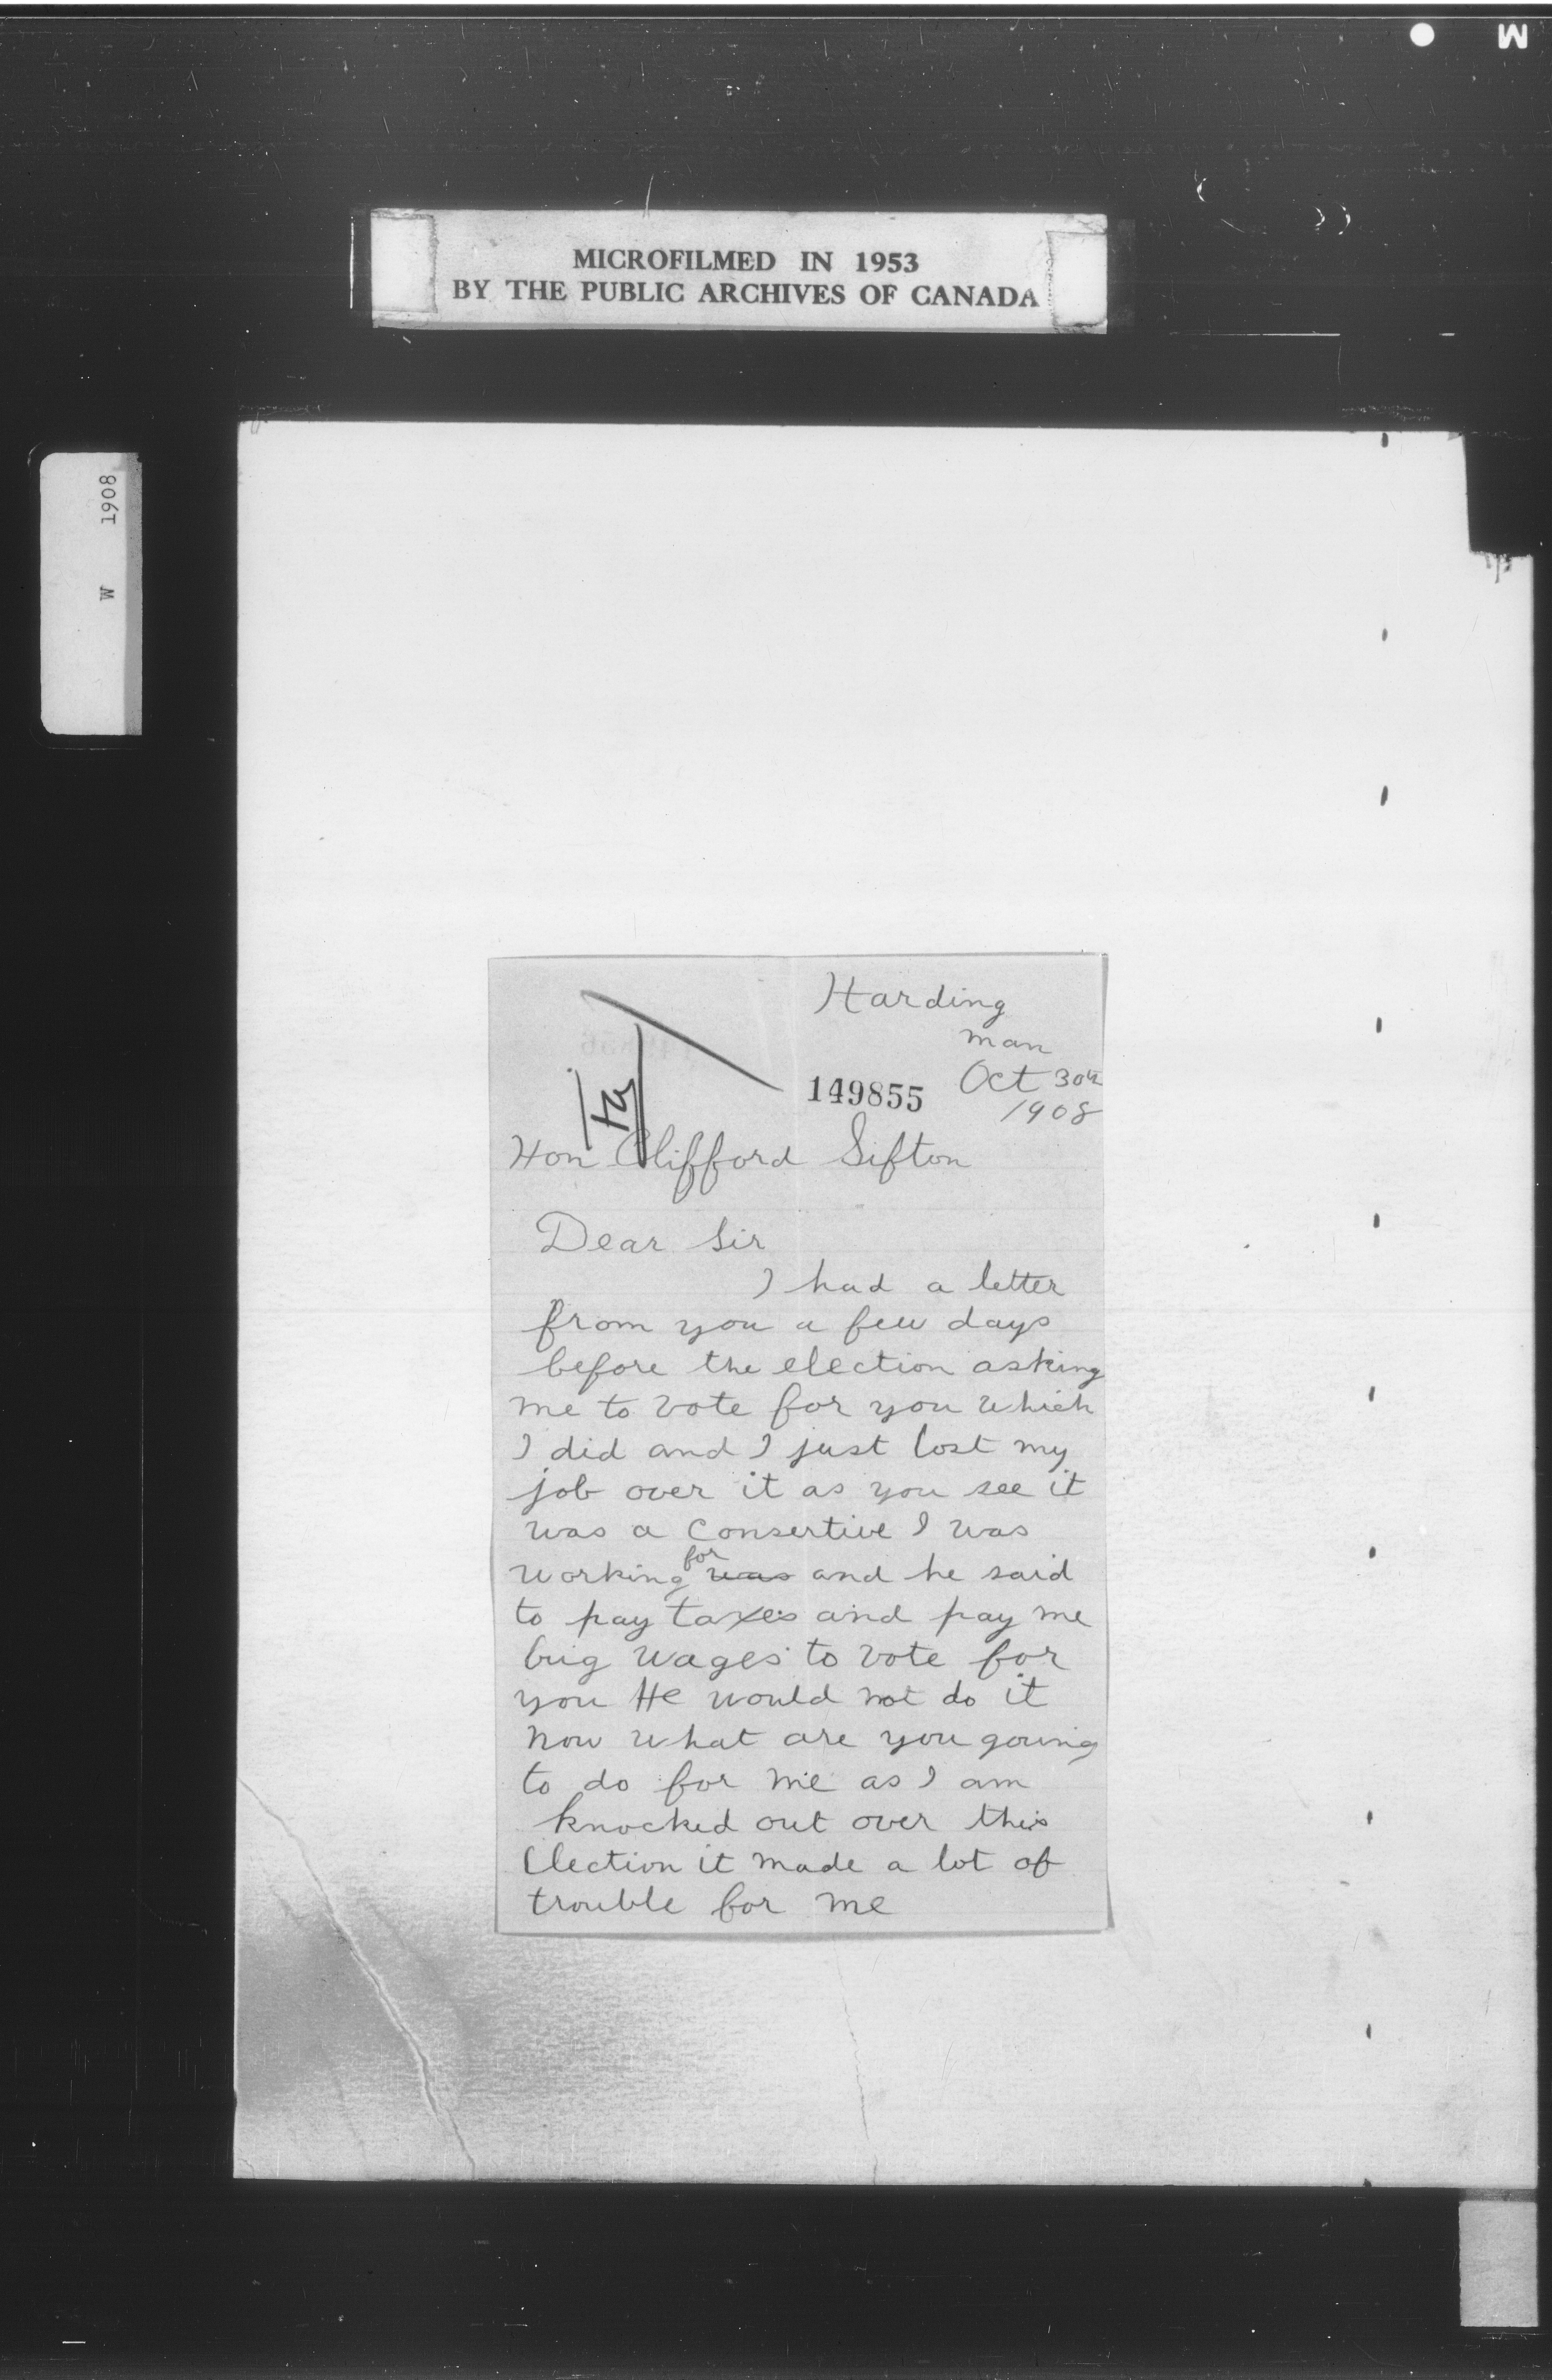 M
MICROFILMED IN 1953
BY THE PUBLIC ARCHIVES OF CANADA
W 1908
Harding
man
149855 Oct 30th
1908
Hon Clifford Sifton
Dear Sir
I had a letter
from you a few days
before the election asking
me to vote for you which
I did and I just lost my
job over it as you see it
was a Consertive I was
working for was and he said
to pay taxes and pay me
big wages to vote for
you He would not do it
now what are you going
to do for me as I am
knocked out over this
Election it made a lot of
trouble for me